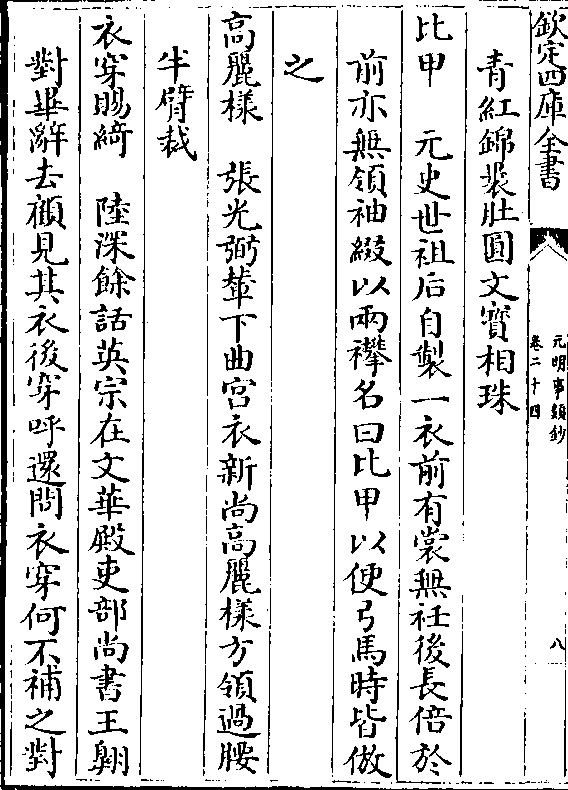 欽定四庫全書
元明事類鈔
卷二十四
八
青紅錦裳肚圓文寶相珠
比甲　元史世祖后自製一衣前有裳無衽後長倍於
前亦無領袖綴以兩襻名曰比甲以便弓馬時皆倣
之
高麗樣　張光弼輦下曲宮衣新尚高麗樣方領過腰
半臂裁
衣穿賜綺　陸深餘話英宗在文華殿吏部尚書王翺
對畢辭去顧見其衣後穿呼還問衣穿何不補之對